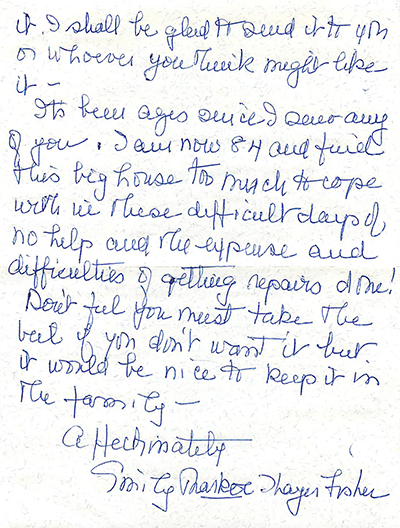 it. I shall be glad to send it to you
or whoever you think might like
it —
It's been ages since I saw any
of you. I am now 84 and find
this big house too much to cope
with in these difficult days of,
no help and the expense and
difficulties of getting repairs done!
Don't feel you must take the
veil if you don't want it but
it would be nice to keep it in
the family —
Affectionately
Emily Thayer Fisher